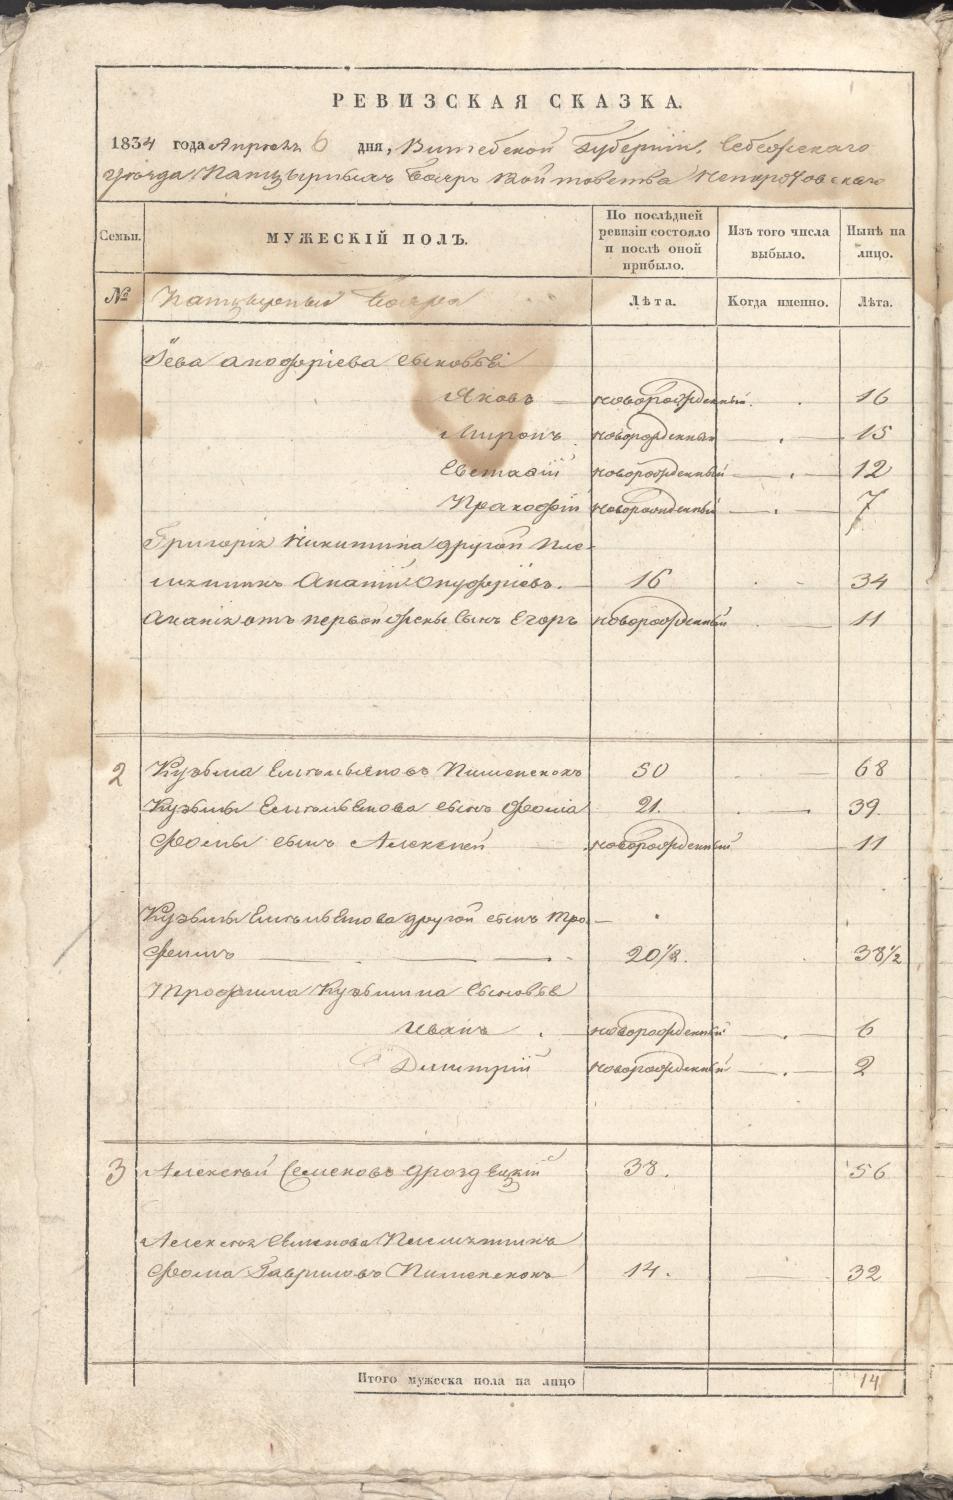 РЕВИЗСКАЯ СКАЗКА.
1834 года Апреля 6 дня, Витебской Губернии, Себежскаго
уезда Панцырныхъ Бояръ Войтовства Непоротовскаго
Семьи. МУЖЕСКІЙ ПОЛЪ. По послѣдней ревизіи состояло и послѣ оной прибыло. Изъ того числа выбыло. Нынѣ на лицо.
№ Панцырные Бояра Лѣта. Когда именно. Лѣта.
сыновья
Яковъ новорожденный 16
Миронъ новорожденный 15
Евстафий новорожденный 12
Пракофий новорожденный 7
Григория Никитина другой пле-
мянникъ Ананий Онуфриевъ. 16 34
Анания отъ первой жены сынъ Егоръ новорожденный 11
2 Кузьма Емельяновъ 50 68
Кузьмы Емельянова сынъ Фома 21. 39.
Фомы сынъ Алексей новорожденный 11
Кузьмы Емельянова другой сынъ Тро-
фимъ 20 1/2. 38 1/2
Трофима Кузьмина сыновья
Иванъ новорожденный 6
Димитрий новорожденный 2
3 Алексей Семеновъ Дроздецкий 38. 56
Алексея Семенова Племянникъ
Фома Гавриловъ 14. 32
Итого мужеска пола на лицо 14